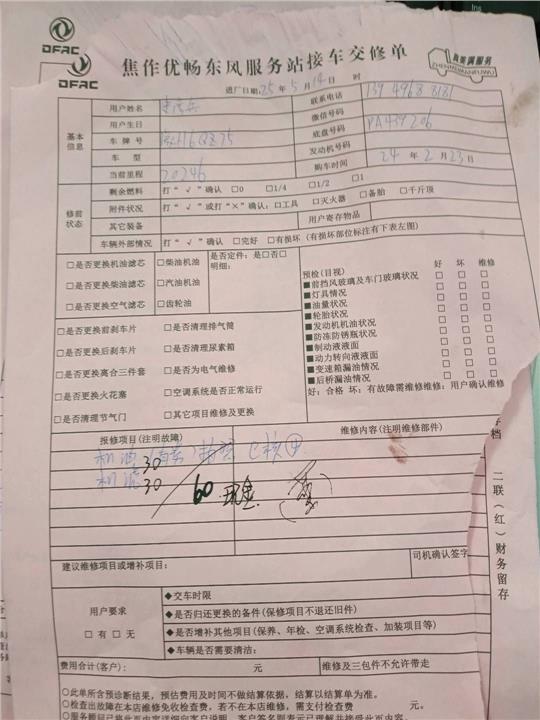 DFAC
DFAC
焦作优畅东风服务站接车交修单
真美满服务
ZHENMEIMANFUWU
进厂日期:25年5月14日 时
基本信息
用户姓名
联系电话 139 4968 8181
用户生日
微信号码
车牌号
底盘号码 PA439206
车型
发动机号码
当前里程 20246
购车时间 24年2月23日
修前状态
剩余燃料 打“√”确认 □0 □1/4 □1/2 □1
附件状况 打“√”或打“×”确认:□工具 □灭火器 □备胎 □千斤顶
其它装备 用户寄存物品
车辆外部情况 打“√”确认 □完好 □有损坏(有损坏部位标注有下表左图)
□是否更换机油滤芯 □柴油机油 是否定件:是□否□
明细:
□是否更换柴油滤芯 □汽油机油
□是否更换空气滤芯 □齿轮油
预检(目视) 好 坏 维修
■前挡风玻璃及车门玻璃状况 □ □ □
■灯具情况 □ □ □
■油量状况 □ □ □
■轮胎状况 □ □ □
■发动机机油状况 □ □ □
■防冻防锈瓶状况 □ □ □
■制动液液面 □ □ □
■动力转向液液面 □ □ □
■变速箱漏油情况 □ □ □
■后桥漏油情况 □ □ □
好:合格 坏:有故障需维修维修:用户确认维修
□是否更换前刹车片 □是否清理排气筒
□是否更换后刹车片 □是否清理尿素箱
□是否更换离合三件套 □是否为电气维修
□是否更换火花塞 □空调系统是否正常运行
□是否清理节气门 □其它项目维修及更换
报修项目(注明故障) 维修内容(注明维修部件)
机油 30
机滤 30
60 现金
存档
二联(红)财务留存
建议维修项目或增补项目:
司机确认签字
用户要求
□有 □无
◆交车时限
◆是否归还更换的备件(保修项目不退还旧件)
◆是否增补其他项目(保养、年检、空调系统检查、加装项目等)
◆车辆是否需要清洁:
费用合计(客户): 元 维修及三包件不允许带走
○此单所含预诊断结果,预估费用及时间不做结算依据,结算以结算单为准。
○检查出故障在本店维修免收检查费,若不在本店维修,需支付检查费 元。